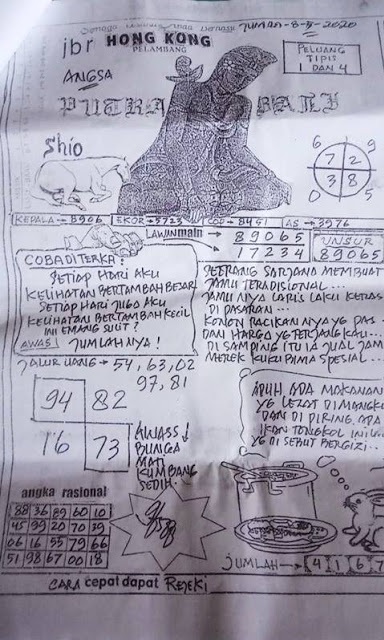 JUMAT-8-5-2020
jbr HONG KONG
PELAMBANG
ANGSA
PELUANG
TIPIS
1 DAN 4
PUTRA BALI
Shio
6 9
7 2
3 8
0 5
KEPALA→8906 EKOR→5723 COP→8451 AS→3976
LAWAN main → 89065
→ 17234
UNSUR
89065
COBA DITERKA!
SETIAP HARI AKU
KELIHATAN BERTAMBAH BESAR
SETIAP HARI JUGA AKU
KELIHATAN BERTAMBAH KECIL
INI EMANG SULIT?
AWAS! JUMLAHNYA!
SEORANG SARJANA MEMBUAT
JAMU TERADISIONAL...
JAMU NYA LARIS LAKU KERAS
DI PASARAN...
KONON RACIKAN NYA YG PAS
DAN HARGA YG TERJANGKAU...
DI SAMPING ITU IA JUAL JAMU
MEREK KUKU BIMA SPESIAL...
JALUR UANG→54,63,02
97,81
94 82
16 73
AWASS
BUNGA
MATI
KUMBANG
SEDIH.
ADUH ADA MAKANAN
YG LEZAT DI MANGKA
DAN DI PIRING. APA
IKAN TONGKOL INI
YG DI SEBUT BERGIZI...
angka rasional
88 36 89 60 10
45 99 20 70 39
06 16 55 79 66
51 98 67 00 18
JUMLAH→ 4 1 6 7
CARA cepat dapat REJEKI